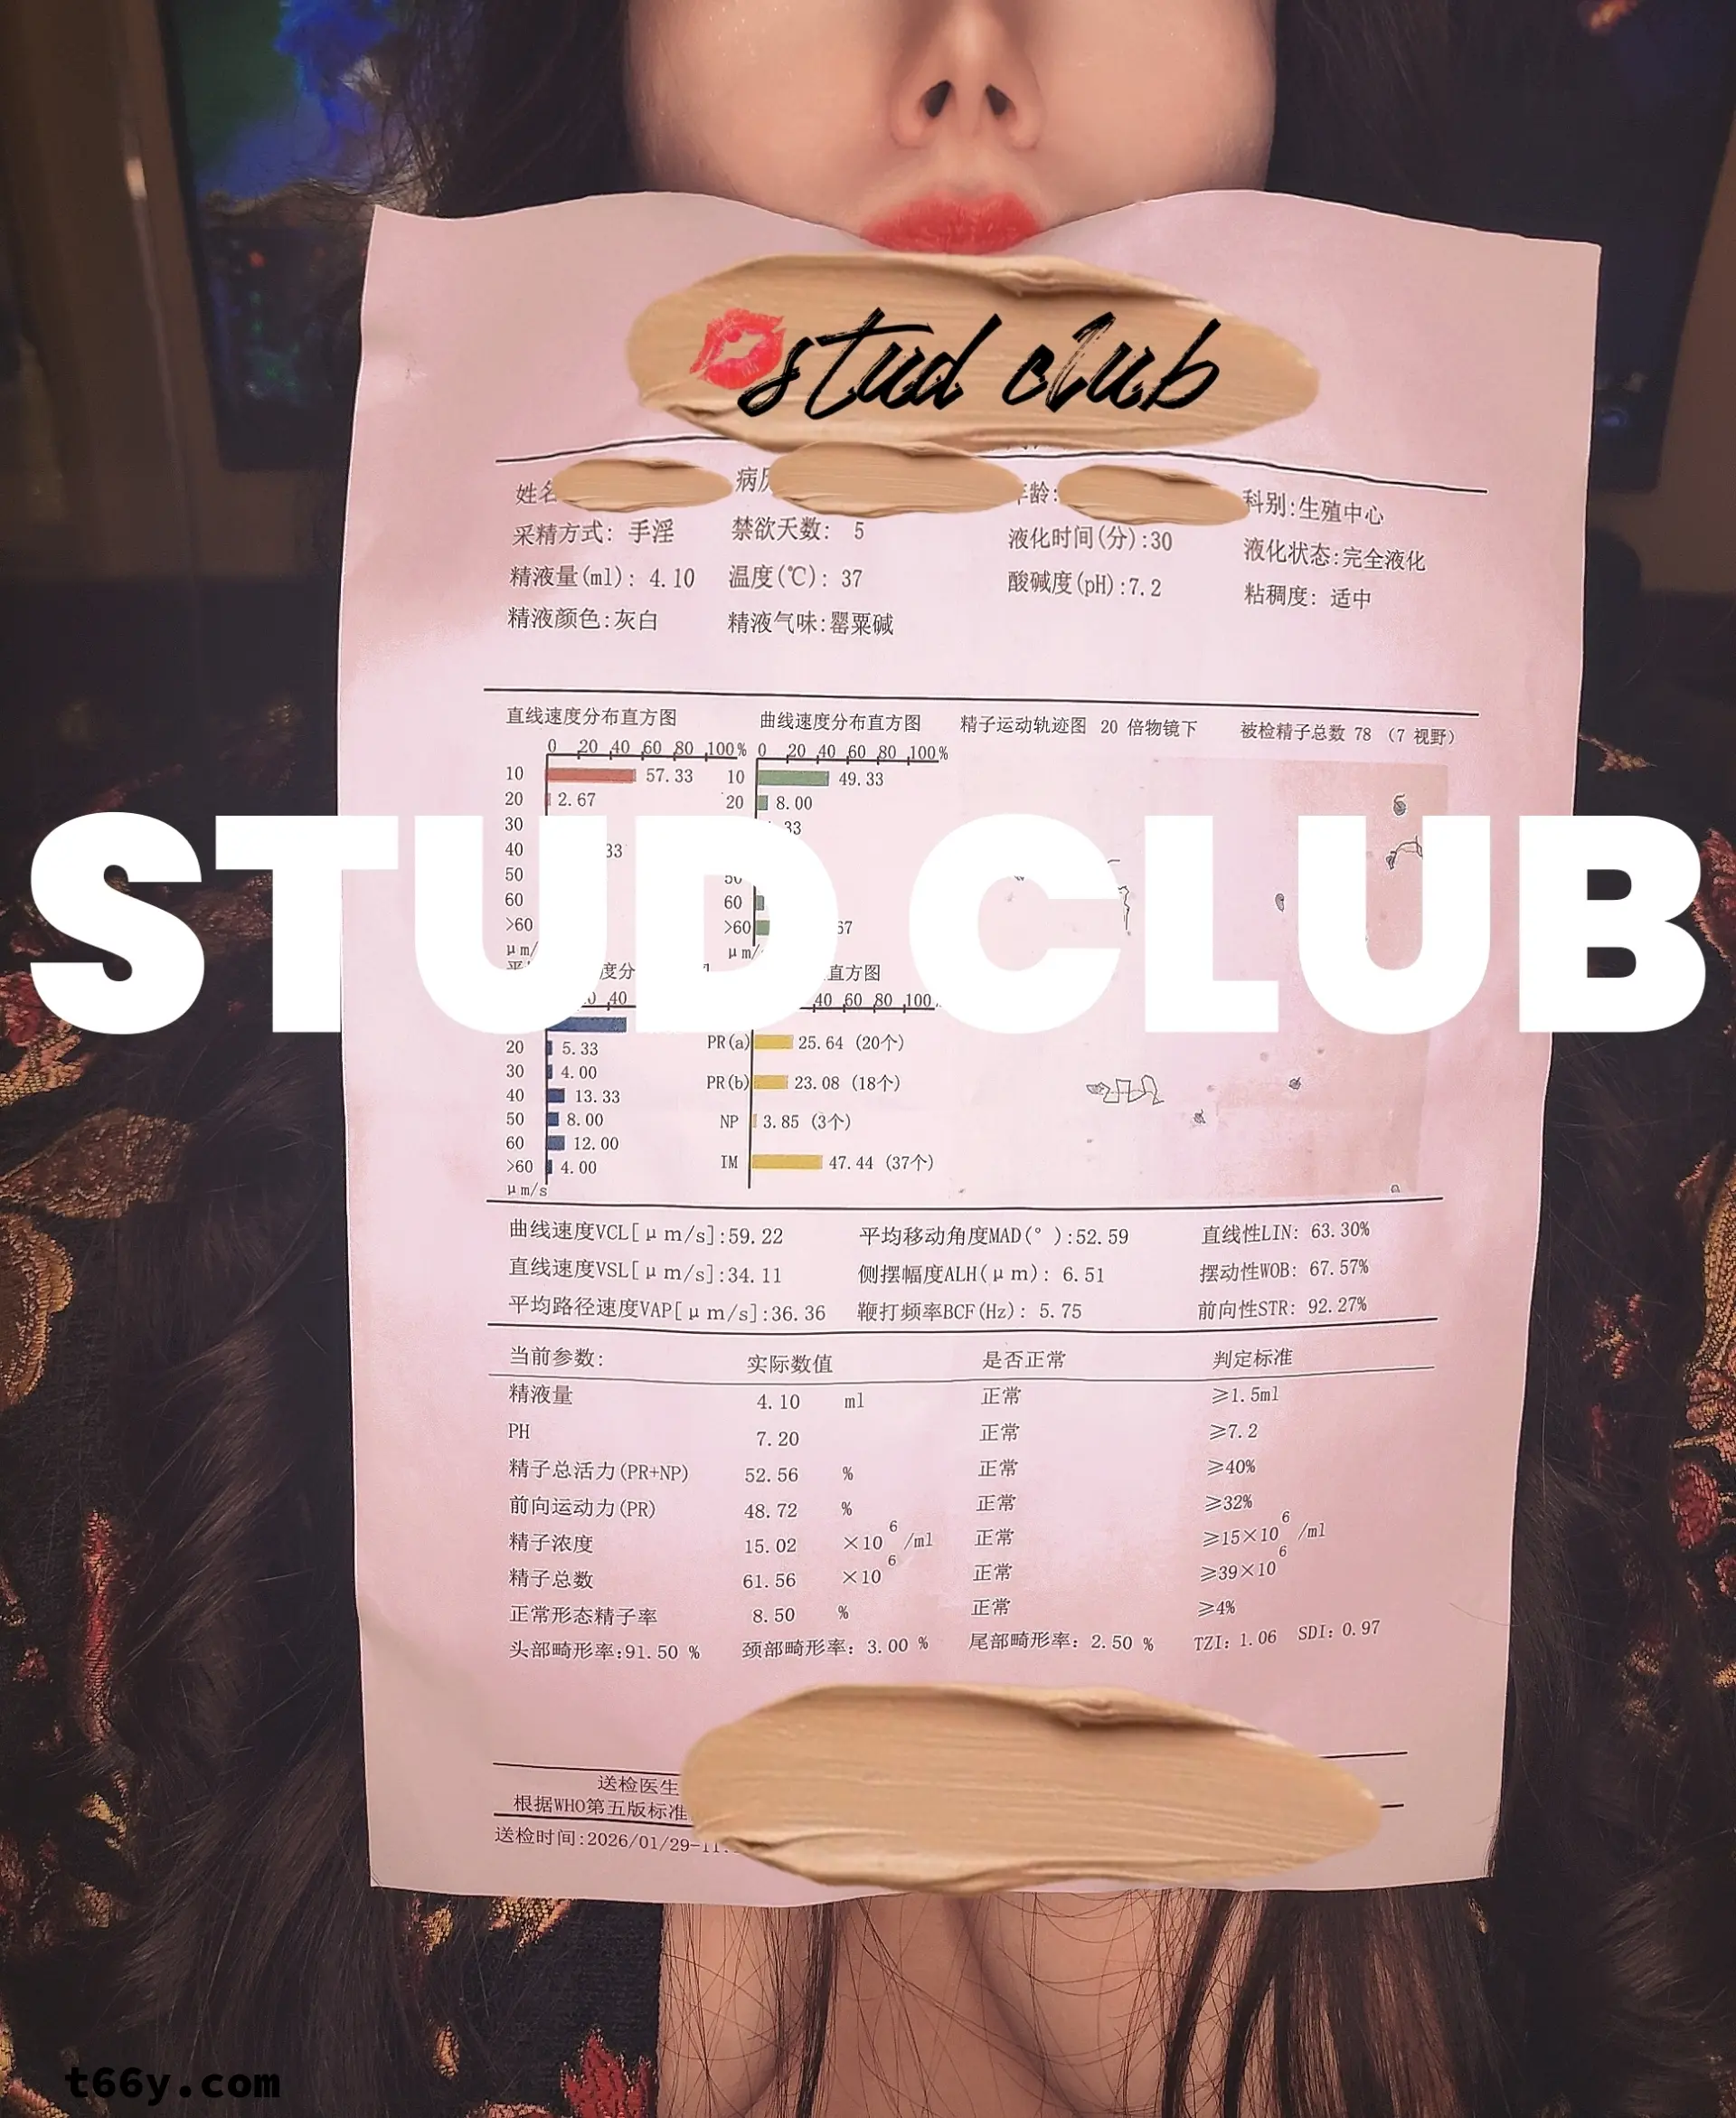 stud club
姓名
病历
年龄:
科别:生殖中心
采精方式: 手淫 禁欲天数: 5 液化时间(分):30 液化状态:完全液化
精液量(ml): 4.10 温度(℃): 37 酸碱度(pH):7.2 粘稠度: 适中
精液颜色:灰白 精液气味:罂粟碱
直线速度分布直方图 曲线速度分布直方图 精子运动轨迹图 20 倍物镜下 被检精子总数 78 (7 视野)
0 20 40 60 80 100% 0 20 40 60 80 100%
10 57.33 10 49.33
20 2.67 20 8.00
30 33
40 33
50 50
60 60
>60 >60 67
μm/ μm/
STUD CLUB
度分 直方图
40 40 60 80 100
20 5.33 PR(a) 25.64 (20个)
30 4.00
40 13.33 PR(b) 23.08 (18个)
50 8.00 NP 3.85 (3个)
60 12.00
>60 4.00 IM 47.44 (37个)
μm/s
曲线速度VCL[μm/s]:59.22 平均移动角度MAD(°):52.59 直线性LIN: 63.30%
直线速度VSL[μm/s]:34.11 侧摆幅度ALH(μm): 6.51 摆动性WOB: 67.57%
平均路径速度VAP[μm/s]:36.36 鞭打频率BCF(Hz): 5.75 前向性STR: 92.27%
当前参数: 实际数值 是否正常 判定标准
精液量 4.10 ml 正常 ≥1.5ml
PH 7.20 正常 ≥7.2
精子总活力(PR+NP) 52.56 % 正常 ≥40%
前向运动力(PR) 48.72 % 正常 ≥32%
精子浓度 15.02 ×10⁶/ml 正常 ≥15×10⁶/ml
精子总数 61.56 ×10⁶ 正常 ≥39×10⁶
正常形态精子率 8.50 % 正常 ≥4%
头部畸形率:91.50 % 颈部畸形率: 3.00 % 尾部畸形率: 2.50 % TZI: 1.06 SDI: 0.97
送检医生
根据WHO第五版标准
送检时间:2026/01/29-11:
t66y.com